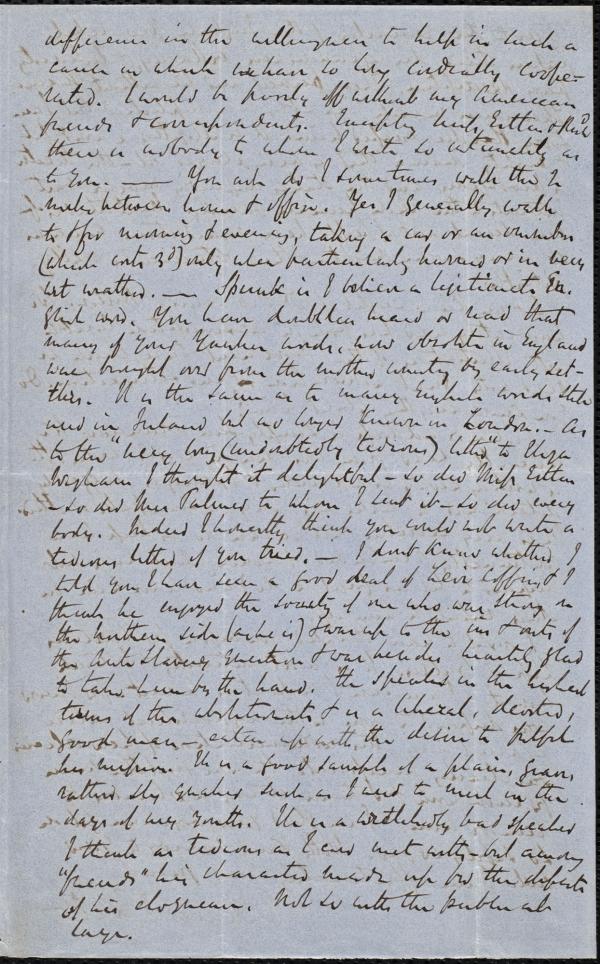 difference in the willingness to help in such a
cause in which we have so long cordially coope-
rated. I would be poorly off without my American
friends & correspondents. Excepting Miss Estlin & Richd
there is nobody to whom I write so intimately as
to you. — You ask do I sometimes walk the 2
miles between home & office. Yes I generally walk
to & fro morning & evening, taking a car or an omnibus
(which costs 3d) only when particularly hurried or in very
wet weather. — Spunk is I believe a legitimate En-
glish word. You have doubtless heard or read that
many of your Yankee words, now obsolete in England
was brought over from the mother country by early set-
tlers. It is the same as to many English words still
used in Ireland but no longer known in London. — As
to the "very long (undoubtedly tedious) letter" to Eliza
Wigham I thought it delightful — so did Miss Estlin
— so did Mrs Palmer to whom I lent it — so did every
body. Indeed I honestly think you could not write a
tedious letter if you tried. — I don't know whether I
told you I have seen a good deal of Levi Coffin, & I
think he enjoyed the society of one who was strong on
the northern side (as he is) & was up to the ins & outs of
the Anti Slavery question & was besides heartily glad
to take him by the hand. He speaks in the highest
terms of the abolitionists & is a liberal, devoted,
good man — eaten up with the desire to fulfil
his mission. He is a good sample of a plain, grave,
rather sly quaker such as I used to meet in the
days of my youth. He is a wretchedly bad speaker
I think as tedious as I ever met with — but among
"friends" his character made up for the defects
of his eloquence. Not so with the public at
large.